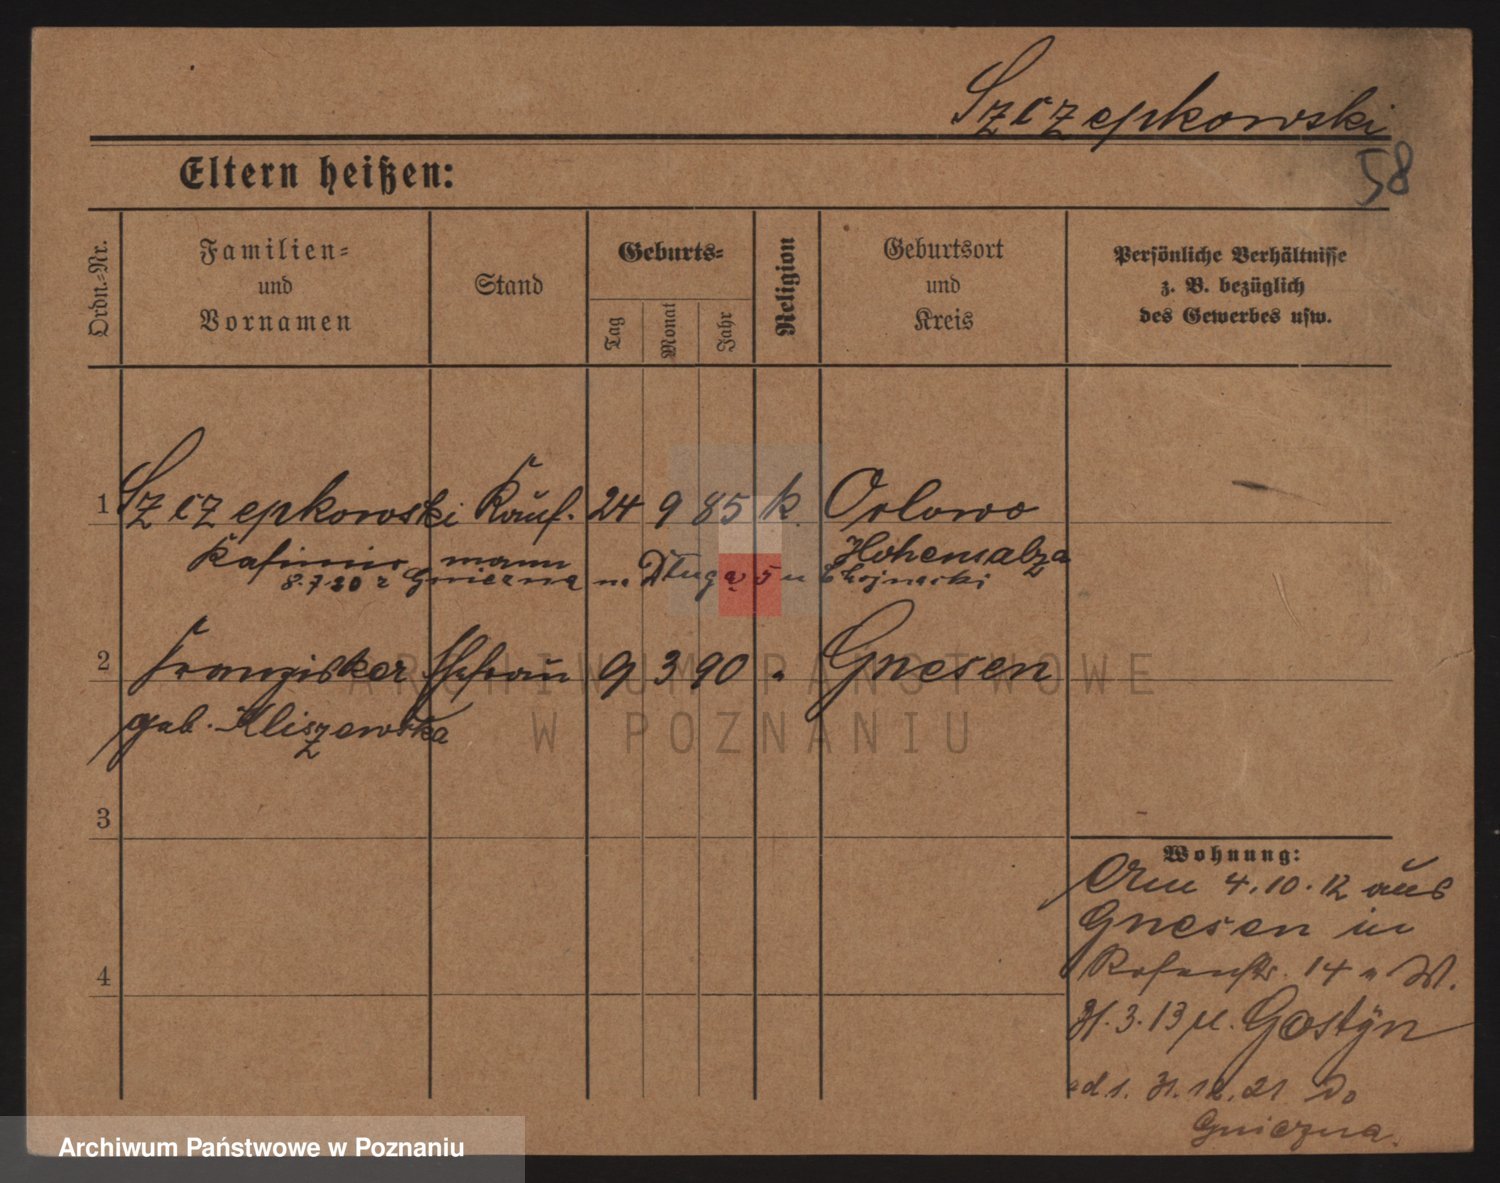 Szczepkowski
58
Eltern heißen:
Ordn.-Nr.
Familien- und Vornamen
Stand
Geburts-
Tag
Monat
Jahr
Religion
Geburtsort und Kreis
Persönliche Verhältnisse z. B. bezüglich des Gewerbes usw.
1 Szczepkowski Kauf- 24 9 85 k. Orlowo
Kasimir mann Hohensalza
8.7.20 z Gniezna na Długą 5 u Chojnacki
2 Franziska Ehefrau 9 3 90 " Gnesen
geb. Kliszewska
3
4
Wohnung:
Am 4.10.12 aus
Gnesen in
Rosenstr. 14 a W.
31.3.13 n. Gostÿn
31.12.21 do
Gniezna.
ARCHIWUM PAŃSTWOWE
W POZNANIU
Archiwum Państwowe w Poznaniu